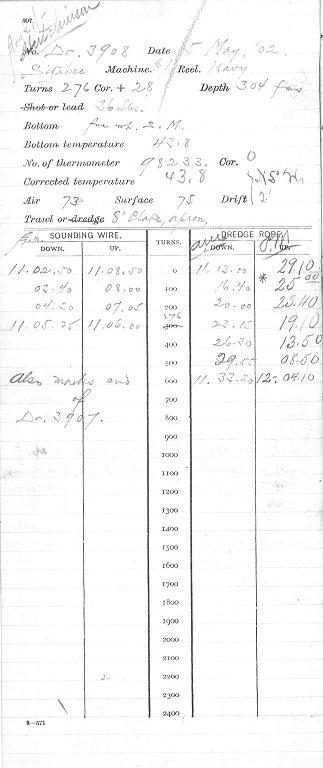 No. Dr. 3908 Date 5 May, '02.
Sigsbee Machine. Reel. Navy
Turns 276 Cor. + 28 Depth 304 fms
Shot or lead 36 lbs.
Bottom fne wh. S. M.
Bottom temperature 43.8
No. of thermometer 98233. Cor. 0
Corrected temperature 43.8
Air 73° Surface 75 Drift 2'
Trawl or dredge 8' Blake, apron,
a.m. SOUNDING WIRE. TURNS. a.m. DREDGE ROPE. P.M.
DOWN. UP. DOWN. UP.
11.02.50 11.08.50 0 11.13.00 29.10
03.40 08.00 100 16.40 * 25 00
04.50 07.05 200 20.00 23.40
11.05.25 11.06.00 276 300 23.15 19.10
400 26.30 13.50
500 29.55 08.50
Also and 600 11.33.20 12-.04.10
of 700
Dr. 3907. 800
900
1000
1100
1200
1300
1400
1500
1600
1700
1800
1900
2000
2100
2200
2300
2400
3—571